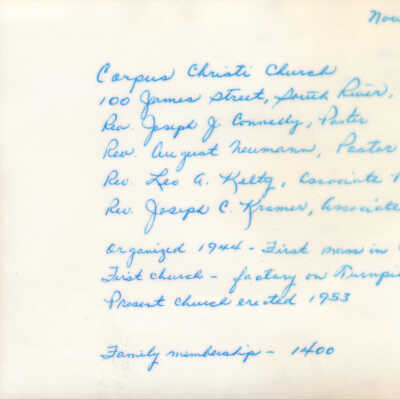 Nov
Corpus Christi Church
100 James Street, South River,
Rev. Joseph J Connelly, Pastor
Rev. August Neumann, Pastor
Rev. Leo A. Kelty, Associate
Rev. Joseph C. Kramer, Associate
Organized 1944 - First mass in
First Church - factory on Turnpi
Present Church erected 1953
Family membership - 1400